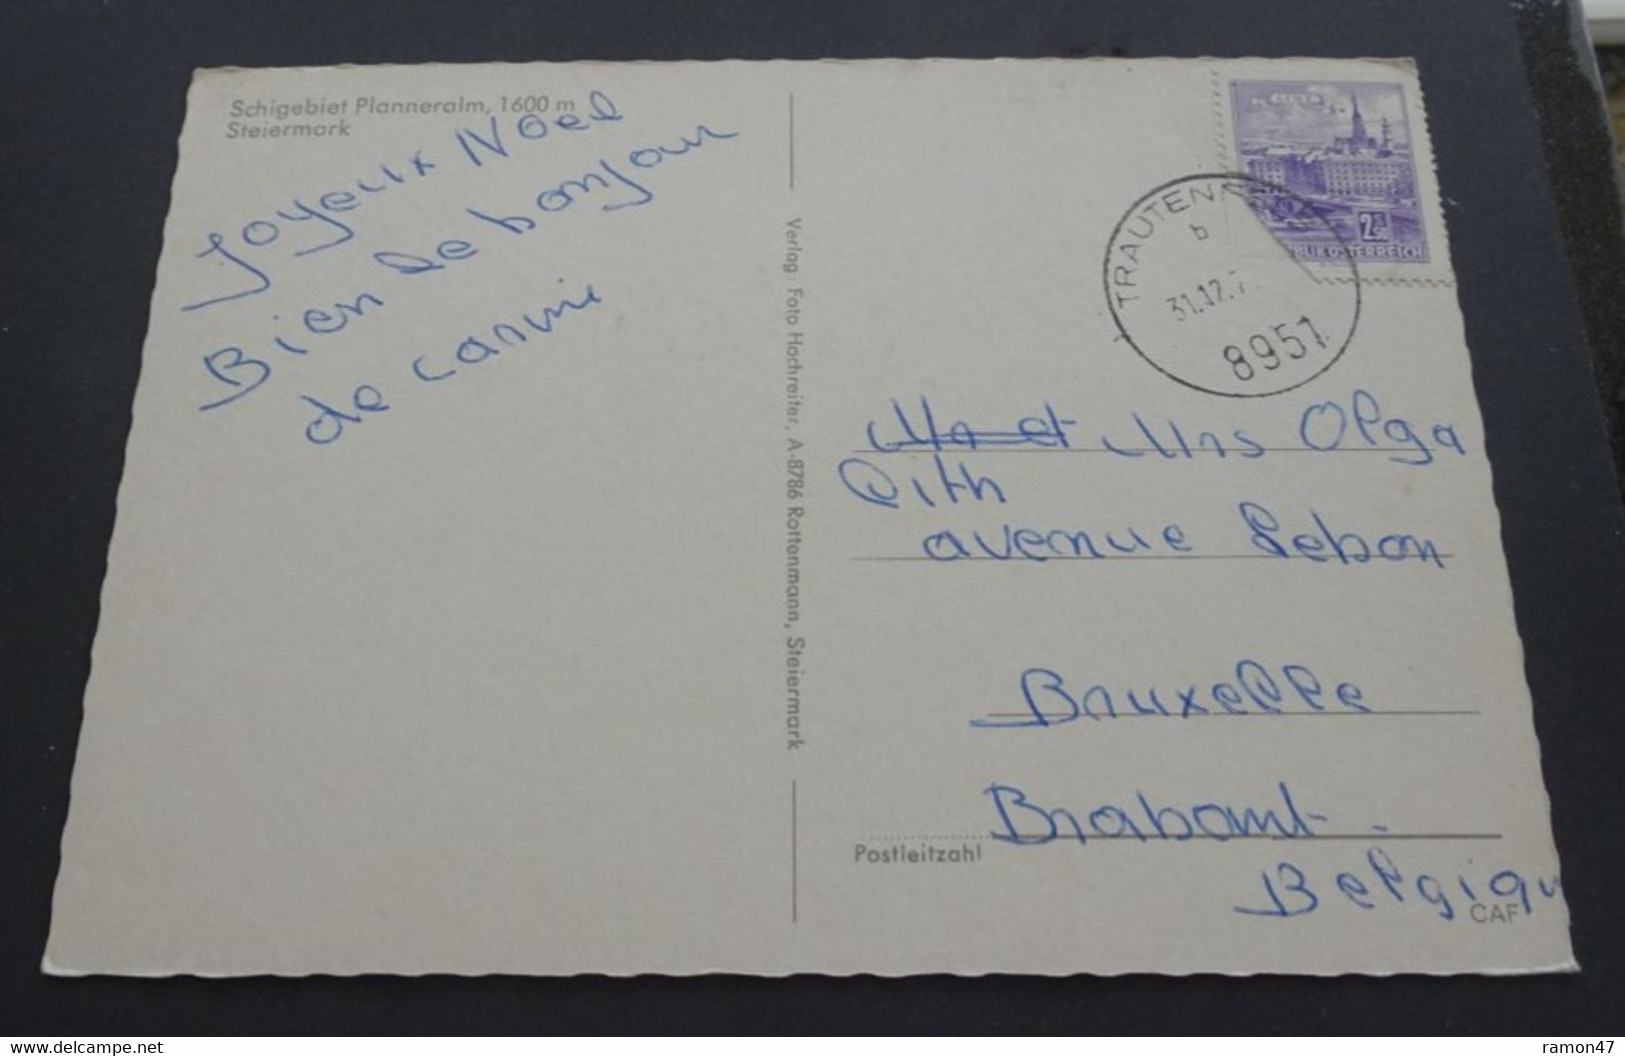 Schigebiet Planneralm, 1600 m
Steiermark
Joyeux Noel
Bien le bonjour
de carvin
Verlag: Foto Hochreiter, A-8786 Rottenmann, Steiermark
TRAUTENFELS
b
31.12.7
8951
2.50
REPUBLIK ÖSTERREICH
Mr et Mrs Olga
avenue Lebon
Bruxelle
Brabant.
Postleitzahl
Belgiqu
CAF
www.delcampe.net
ramon47